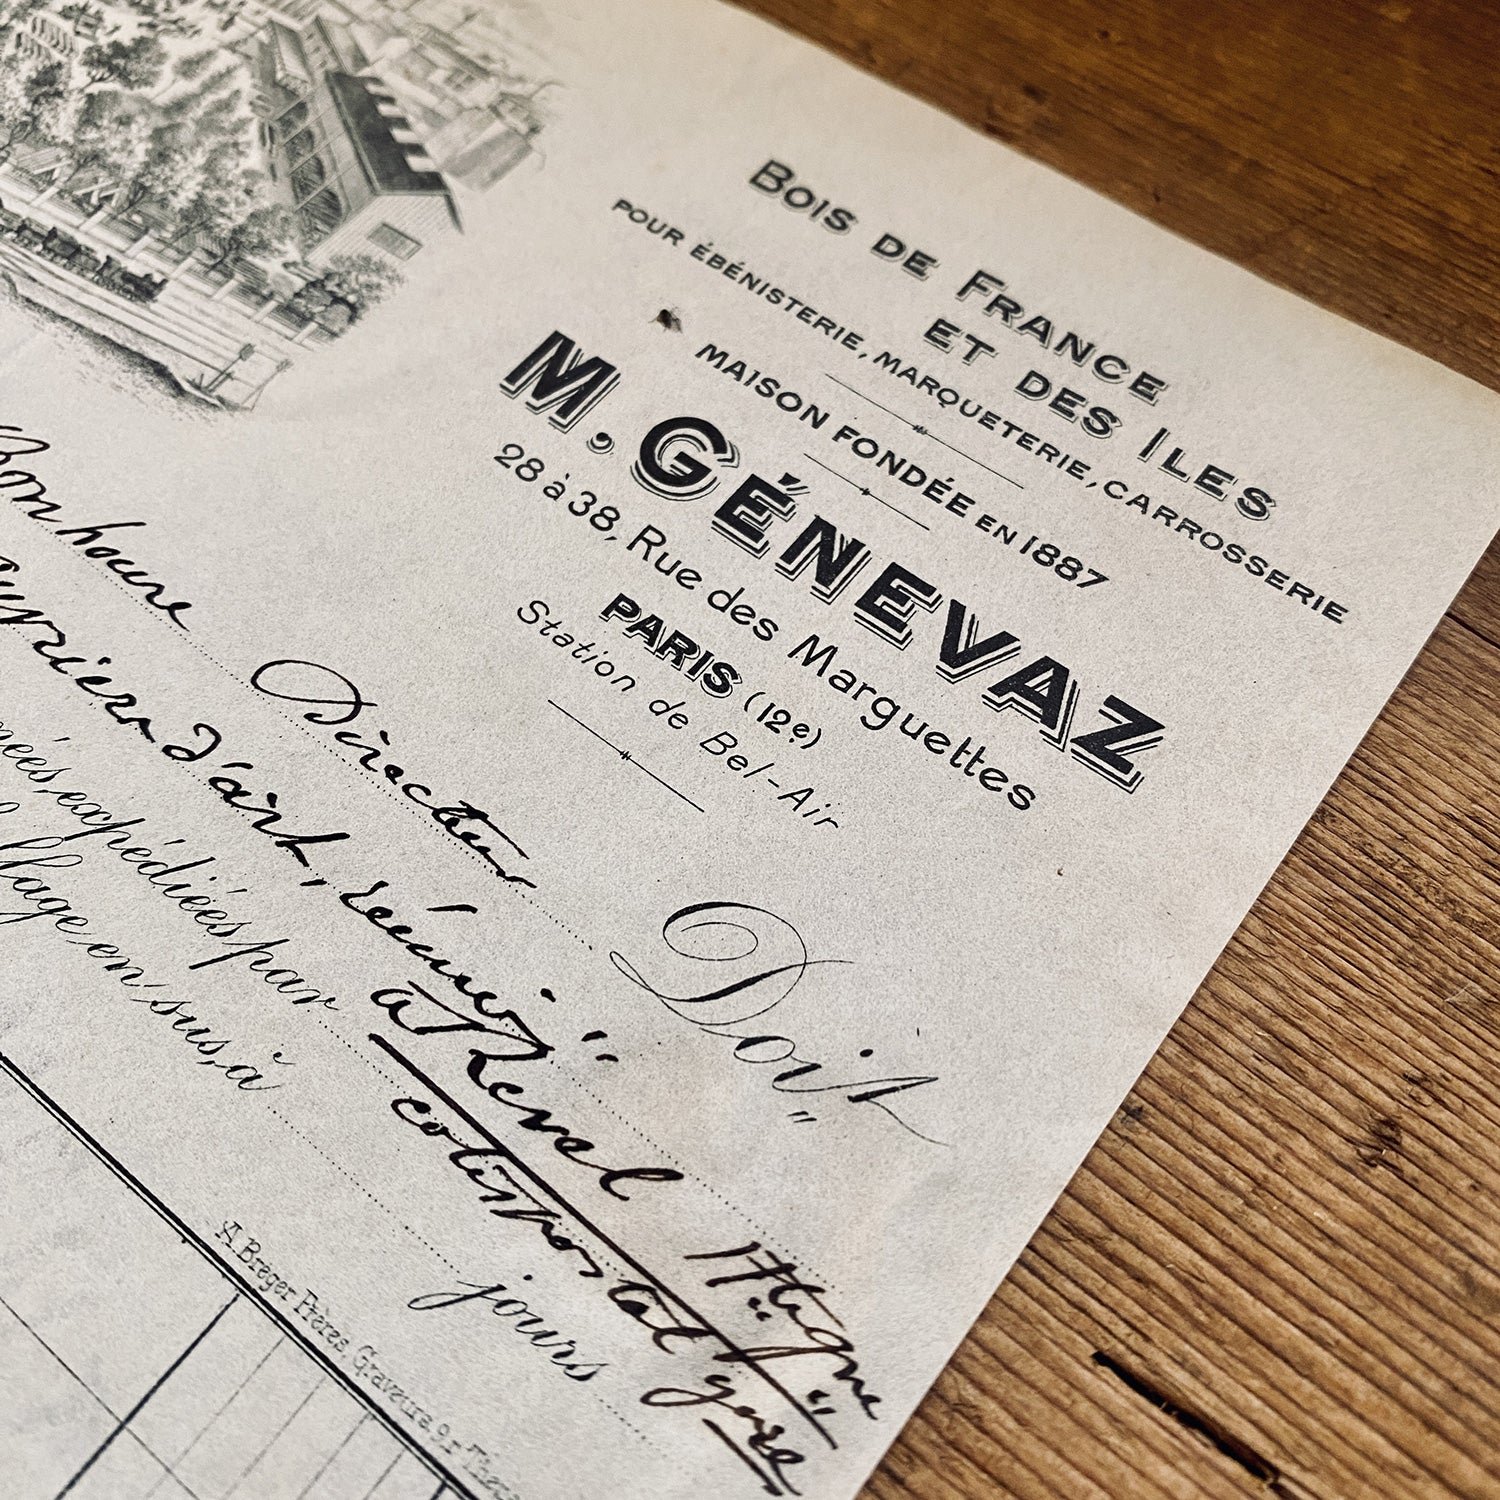 BOIS DE FRANCE
ET DES ILES
POUR ÉBÉNISTERIE, MARQUETERIE, CARROSSERIE
MAISON FONDÉE EN 1887
M. GÉNEVAZ
28 à 38, Rue des Marguettes
PARIS (12e)
Station de Bel-Air
Bonheure Directeur Doit
d'art, à Revel Hte Gne
expédiées par colis postal gare
en sus, à jours
A. Breger Frères, Graveurs 9, r.